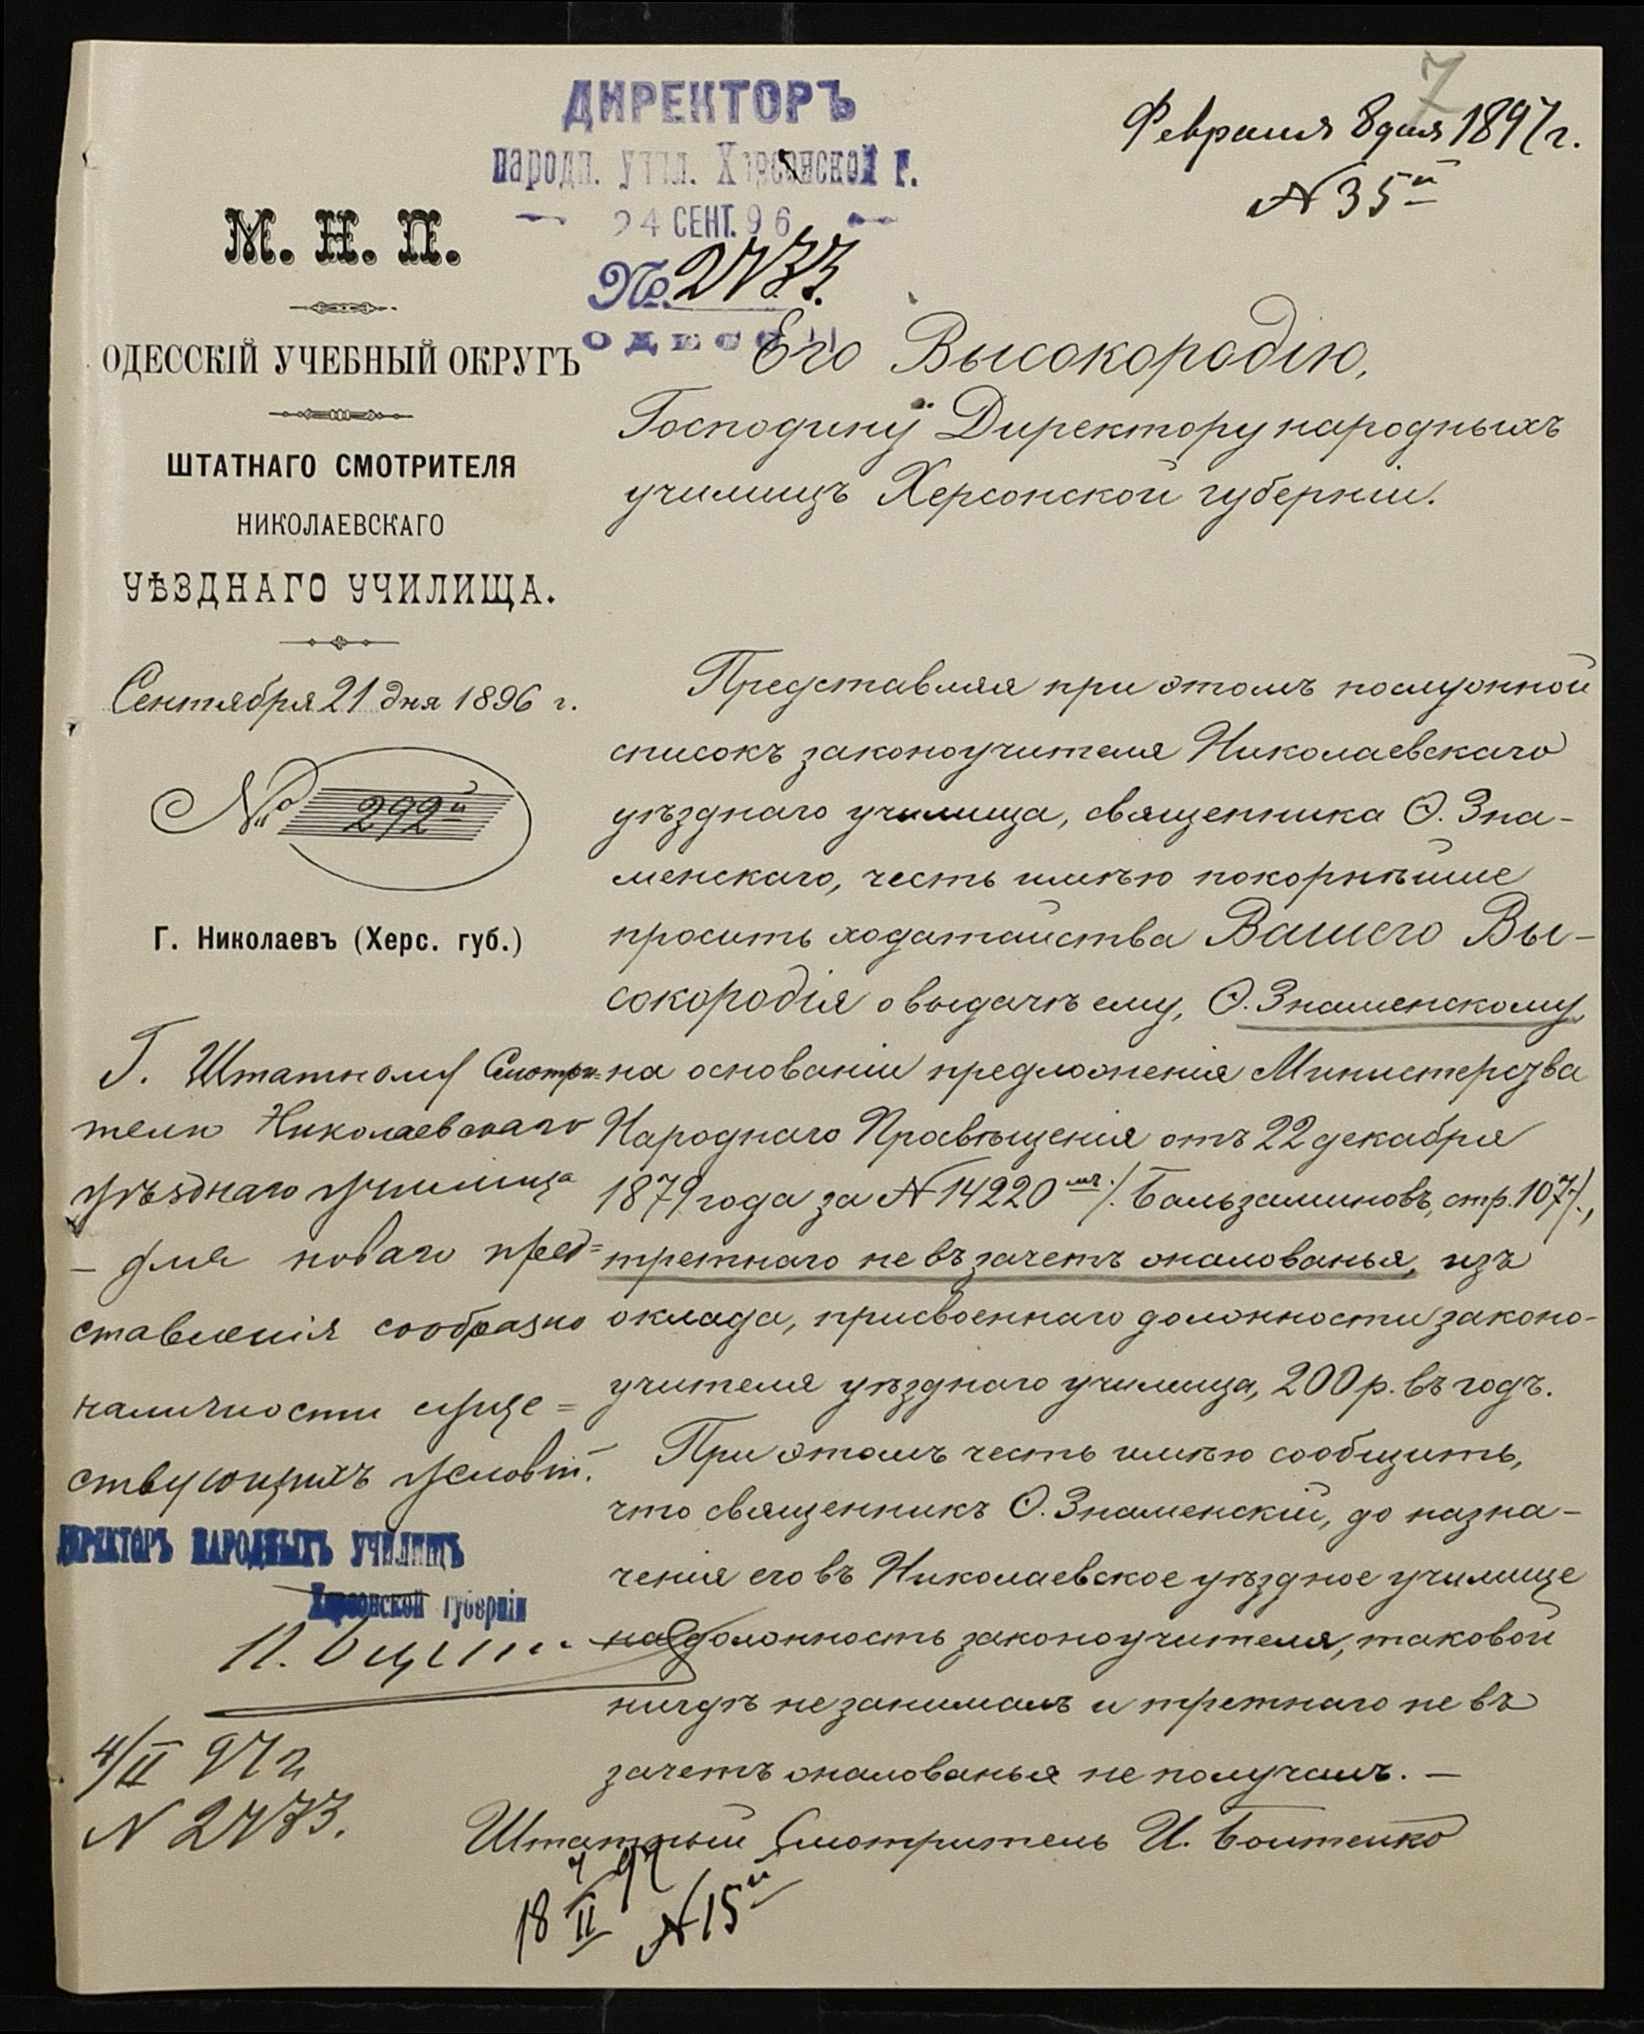 7
Февраля 8 дня 1897 г.
№ 35й
ДИРЕКТОРЪ
народн. учил. Херсонской г.
24 СЕНТ. 96
№ 2773.
ОДЕССА
М. Н. П.
ОДЕССКІЙ УЧЕБНЫЙ ОКРУГЪ
ШТАТНАГО СМОТРИТЕЛЯ
НИКОЛАЕВСКАГО
УѢЗДНАГО УЧИЛИЩА.
Сентября 21 дня 1896 г.
№ 292й
Г. Николаевъ (Херс. губ.)
Его Высокородію,
Господину Директору народныхъ
училищъ Херсонской губерніи.
Представляя при этомъ послужной
списокъ законоучителя Николаевскаго
уѣзднаго училища, священника Ѳ. Зна-
менскаго, честь имѣю покорнѣйше
просить ходатайства Вашего Вы-
сокородія о выдачѣ ему, Ѳ. Знаменскому,
на основаніи предложенія Министерства
Народнаго Просвѣщенія отъ 22 декабря
1879 года за № 14220мъ /. Бальзаминовъ, стр. 107 /.,
третнаго не въ зачетъ жалованья, изъ
оклада, присвоеннаго должности законо-
учителя уѣзднаго училища, 200 р. въ годъ.
При этомъ честь имѣю сообщить,
что священникъ Ѳ. Знаменскій, до назна-
ченія его въ Николаевское уѣздное училище
на должность законоучителя, таковой
нигдѣ не занималъ и третнаго не въ
зачетъ жалованья не получалъ. —
Штатный Смотритель И. Болтенко
Г. Штатному Смотри=
телю Николаевскаго
уѣзднаго училища
— для новаго пред=
ставленія сообразно
наличности суще=
ствующихъ условій.
ДИРЕКТОРЪ НАРОДНЫХЪ УЧИЛИЩЪ
Херсонской губерніи
4/II 97 г.
№ 2773.
18 II 97
№ 15й